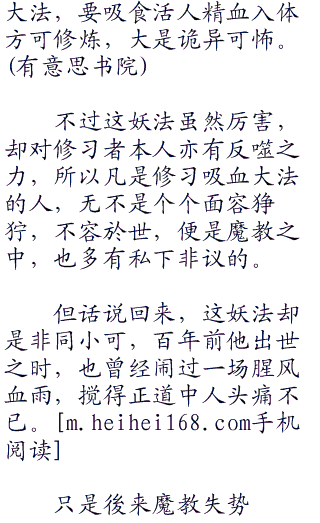 大法，要吸食活人精血入体
方可修炼，大是诡异可怖。
(有意思书院)
不过这妖法虽然厉害，
却对修习者本人亦有反噬之
力，所以凡是修习吸血大法
的人，无不是个个面容狰
狞，不容於世，便是魔教之
中，也多有私下非议的。
但话说回来，这妖法却
是非同小可，百年前他出世
之时，也曾经闹过一场腥风
血雨，搅得正道中人头痛不
已。[m.heihei168.com手机
阅读]
只是後来魔教失势